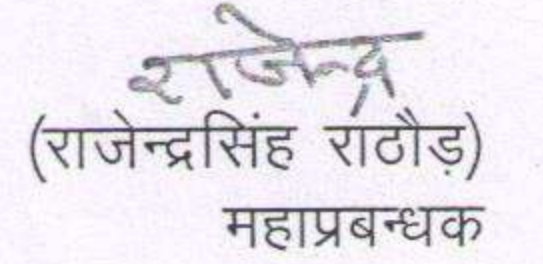 राजेन्द्र
(राजेन्द्रसिंह राठौड़)
महाप्रबन्धक